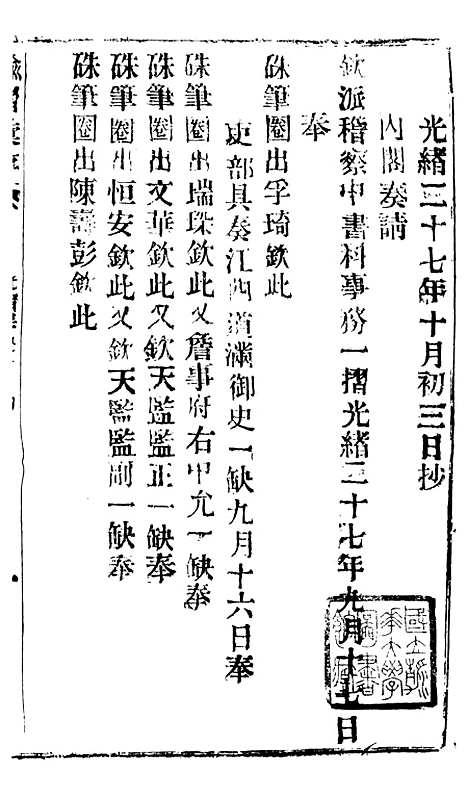 光緒三十七年十月初三日抄
內閣奏請
欽派稽察中書科事務一摺光緒三十七年九月十七日
奉
硃筆圈出孚琦欽此
吏部具奏江西道滿御史一缺九月十六日奉
硃筆圈出瑞琛欽此又詹事府右中允一缺奉
硃筆圈出文華欽此又欽天監監正一缺奉
硃筆圈出恒安欽此又欽天監監副一缺奉
硃筆圈出陳壽彭欽此
國立
華大學
圖書
館藏